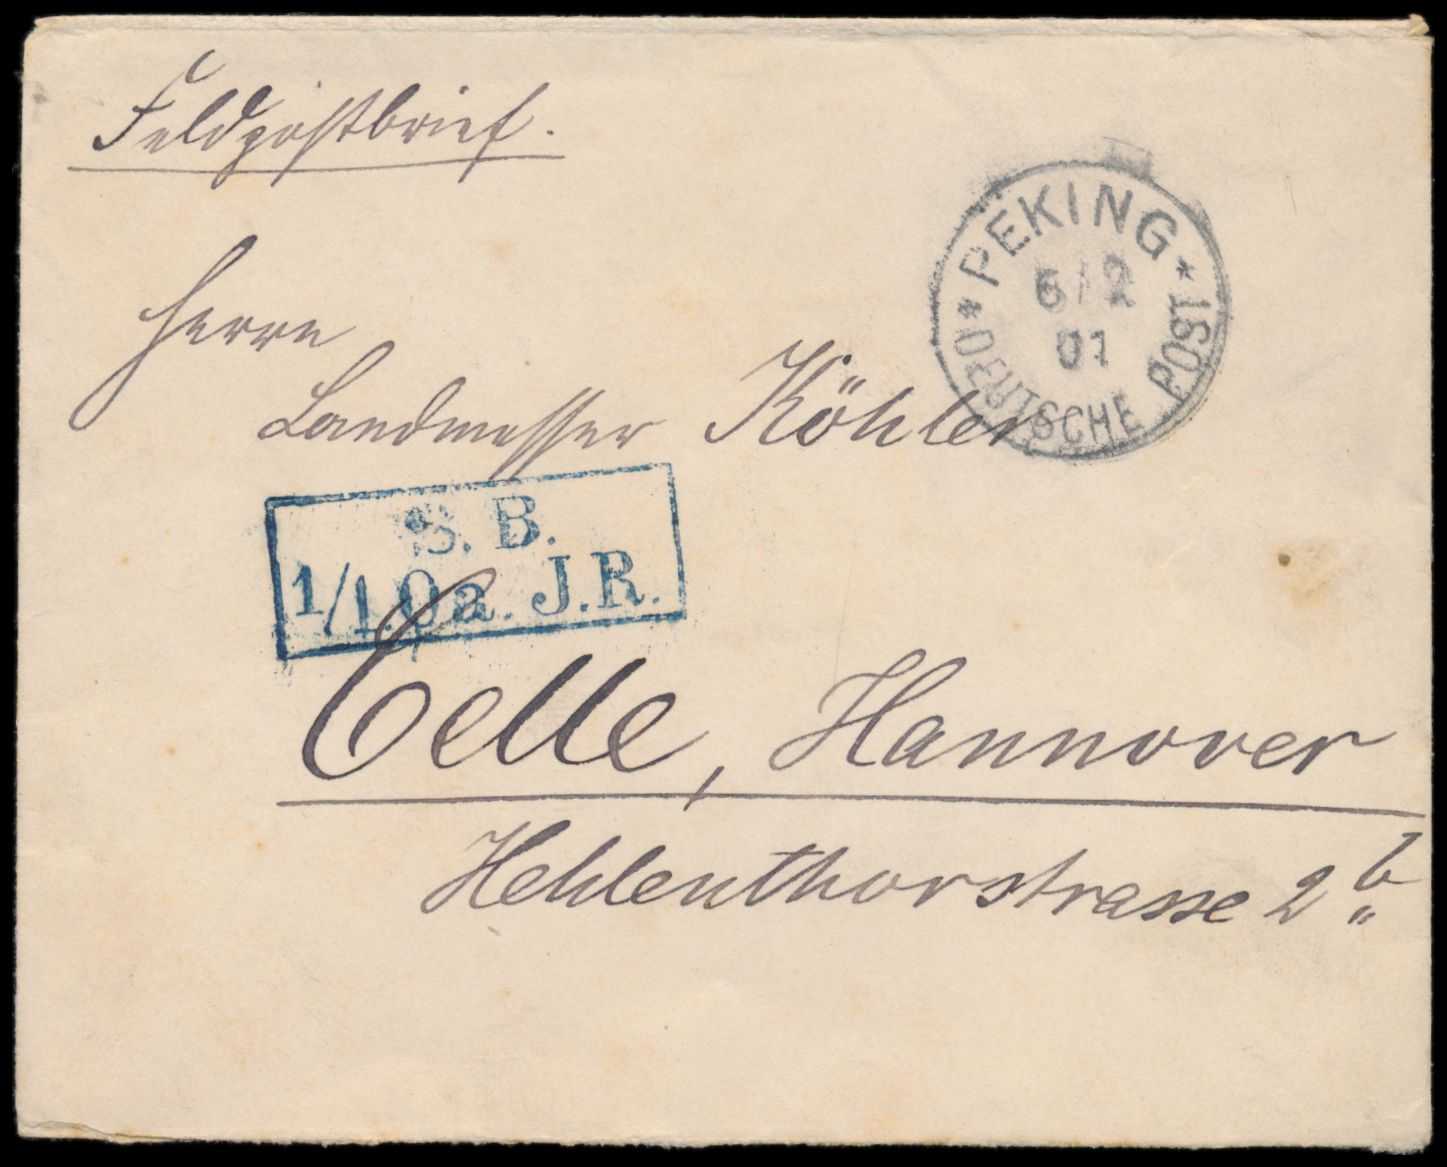 Feldpostbrief.
PEKING
5/2
01
* DEUTSCHE POST *
Herrn
Landmesser Köhler
S. B.
1/1.Oa. J.R.
Celle, Hannover
Hehlenthorstrasse 2b.